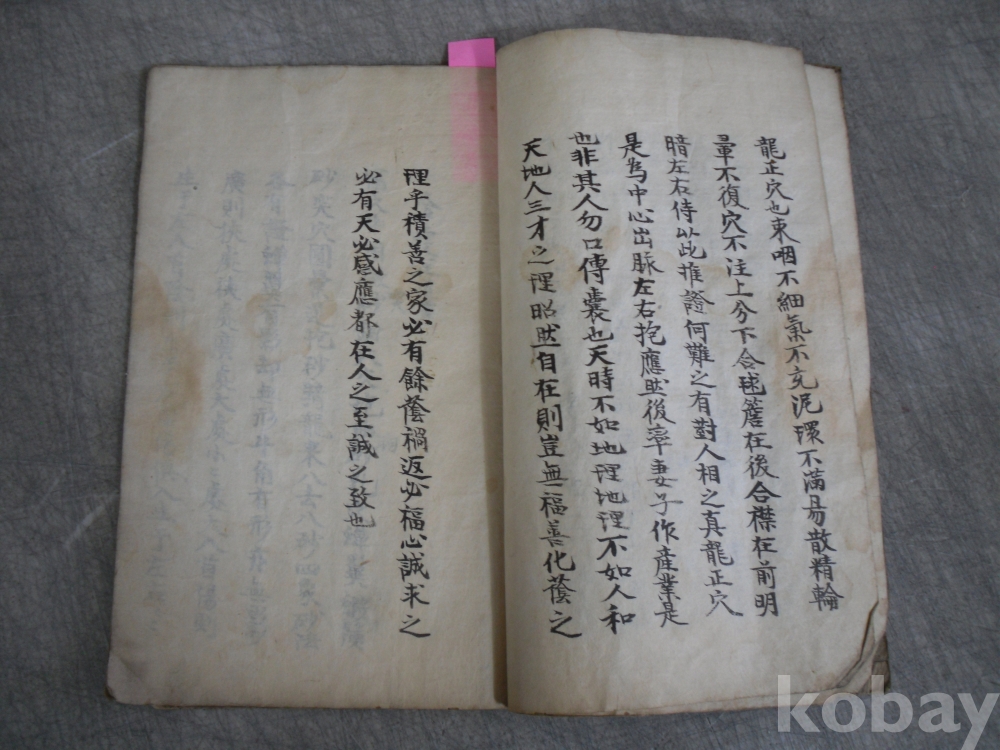 龍正穴也束咽不細氣不充泥環不滿易散精輪
暈不復穴不注上分下合毬簷在後合襟在前明
暗左右侍以此推證何難之有對人相之真龍正穴
是爲中心出脉左右抱應然後率妻子作產業是
也非其人勿口傳囊也天時不如地理地理不如人和
天地人三才之理昭然自在則豈無福善化蔭之
理乎積善之家必有餘蔭禍返必福心誠求之
必有天必感應都在人之至誠之致也
kobay